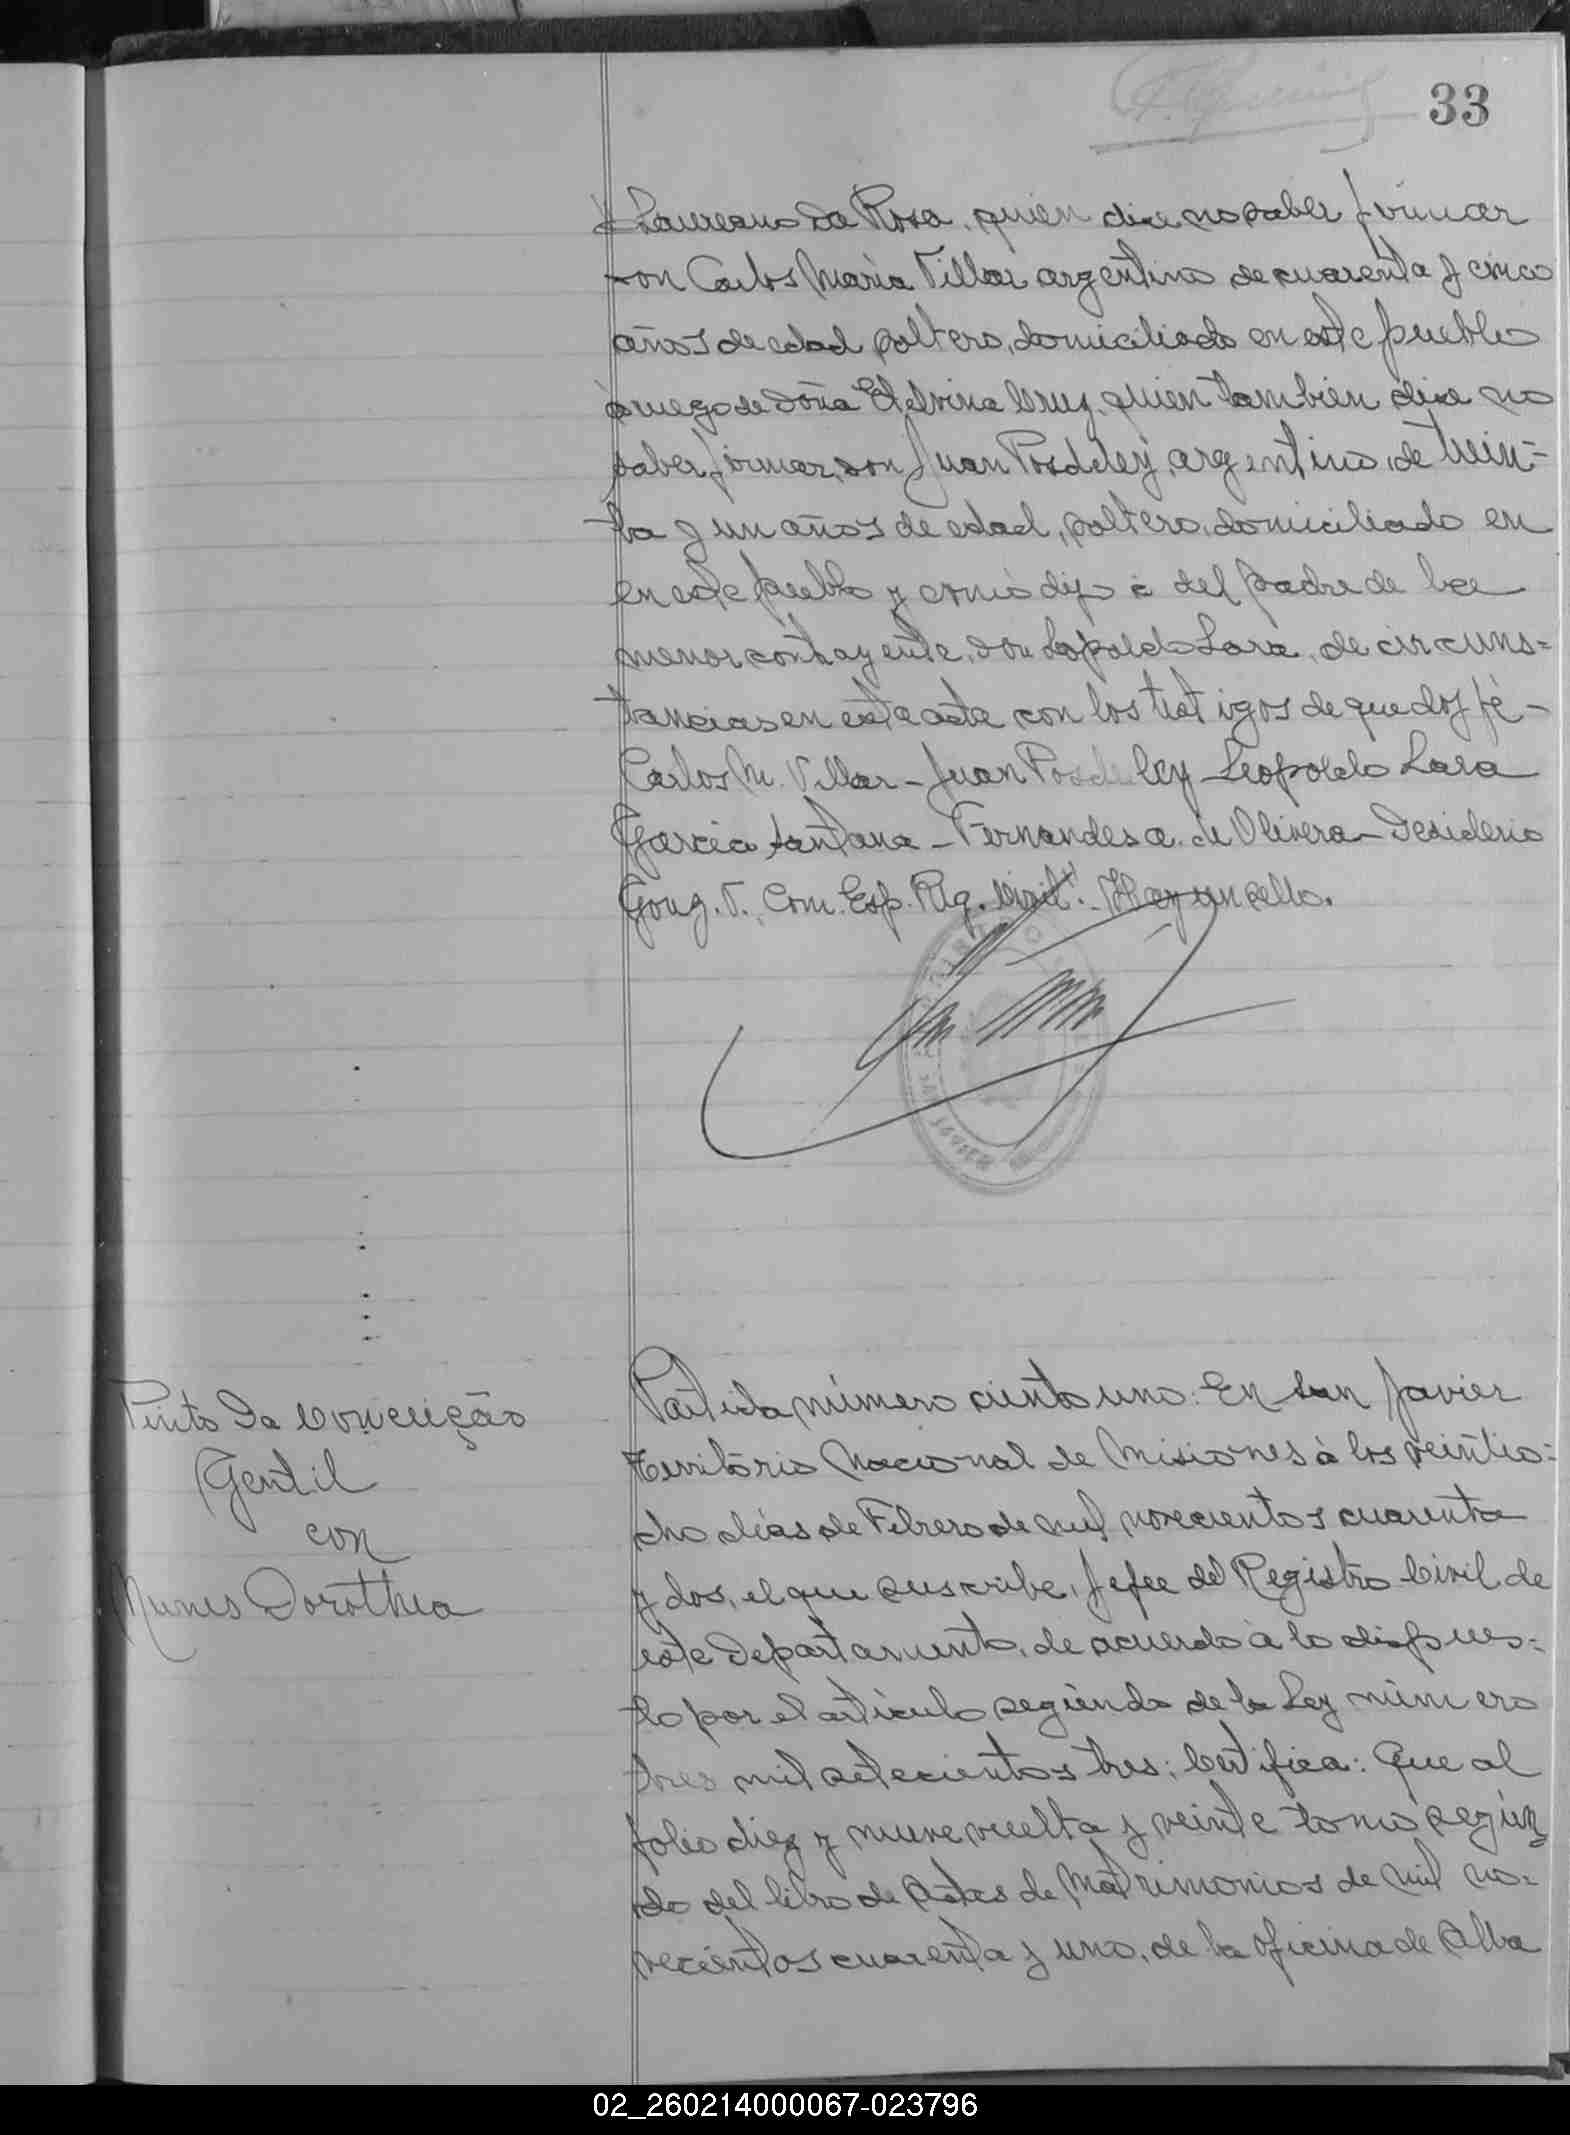 33
Laureano Da Rosa, quien dice no saber firmar
don Carlos Maria Villar argentino de cuarenta y cinco
años de edad soltero, domiciliado en este pueblo
à ruego de doña Etelvina Cruz, quien tambien dice no
saber firmar, don Juan Posdeley, argentino, de trein=
ta y un años de edad, soltero, domiciliado en
en este pueblo y como dijo à del padre de la
menor contrayente, don Leopoldo Lara, de circuns=
tancias en este acta con los testigos de que doy fé-
Carlos M. Villar - Juan Posdeley - Leopoldo Lara
Garcia Santana - Fernandes a. de Olivera - Desiderio
Gonz. V. Com. Esp. Rg. Civil". - Hay un sello.
Pinto Da Conceição
Gentil
con
Nunes Dorothea
Partida número ciento uno: En San Javier
Territorio Nacional de Misiones à los veintio=
cho dias de Febrero de mil novecientos cuarenta
y dos, el que suscribe, Jefee del Registro Civil de
este Departamento, de acuerdo à lo dispues=
to por el articulo segundo de la Ley número
tres mil setecientos tres; Certifica: Que al
folio diez y nueve vuelta y veinte tomo segun
do del libro de Actas de Matrimonios de mil no=
vecientos cuarenta y uno, de la oficina de Alba
02_260214000067-023796